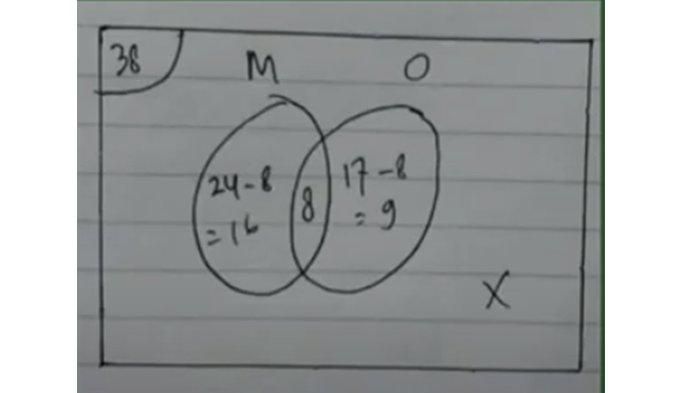 38
M O
24-8
= 16
8
17-8
= 9
X